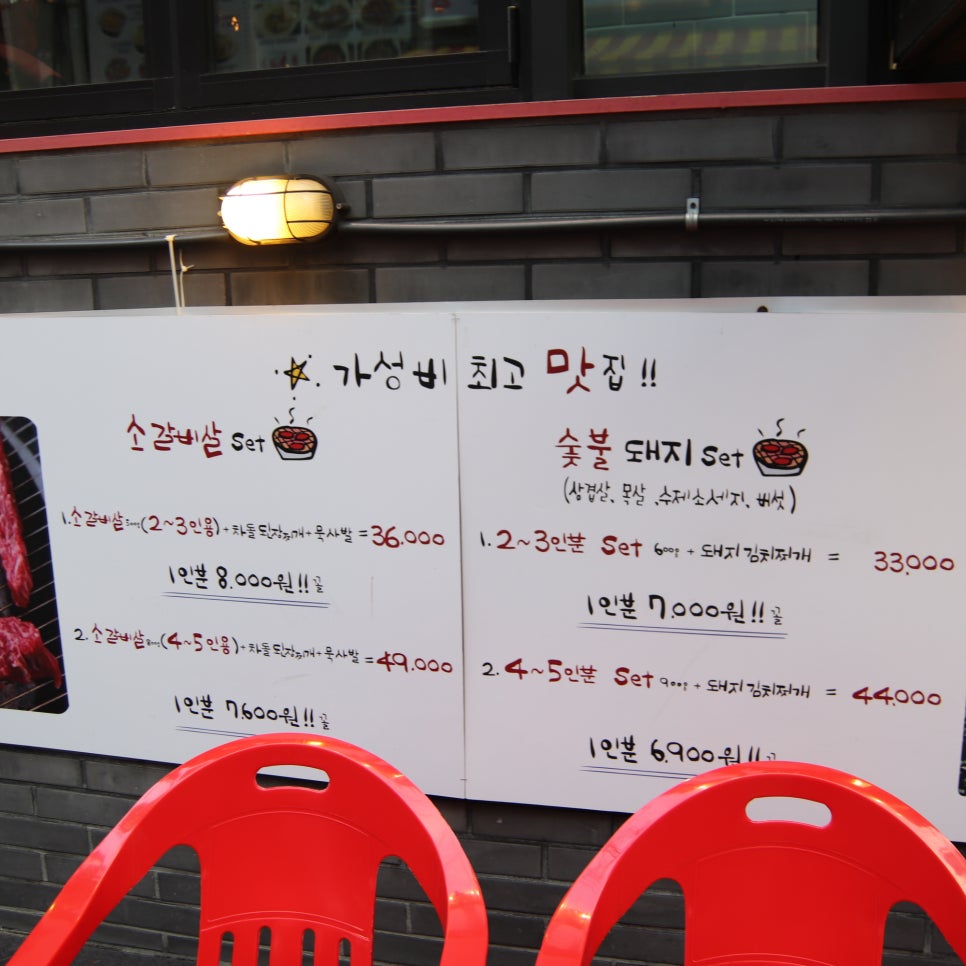 가성비 최고 맛집!!
소갈비살 Set
1. 소갈비살 500g (2~3인용) + 차돌된장찌개 + 묵사발 = 36.000
1인분 8.000원!! 꼴
2. 소갈비살 800g (4~5인용) + 차돌된장찌개 + 묵사발 = 49.000
1인분 7.600원!! 꼴
숯불 돼지 Set
(삼겹살, 목살, 수제소세지, 버섯)
1. 2~3인분 Set 600g + 돼지김치찌개 = 33.000
1인분 7.000원!! 꼴
2. 4~5인분 Set 900g + 돼지김치찌개 = 44.000
1인분 6.900원!!